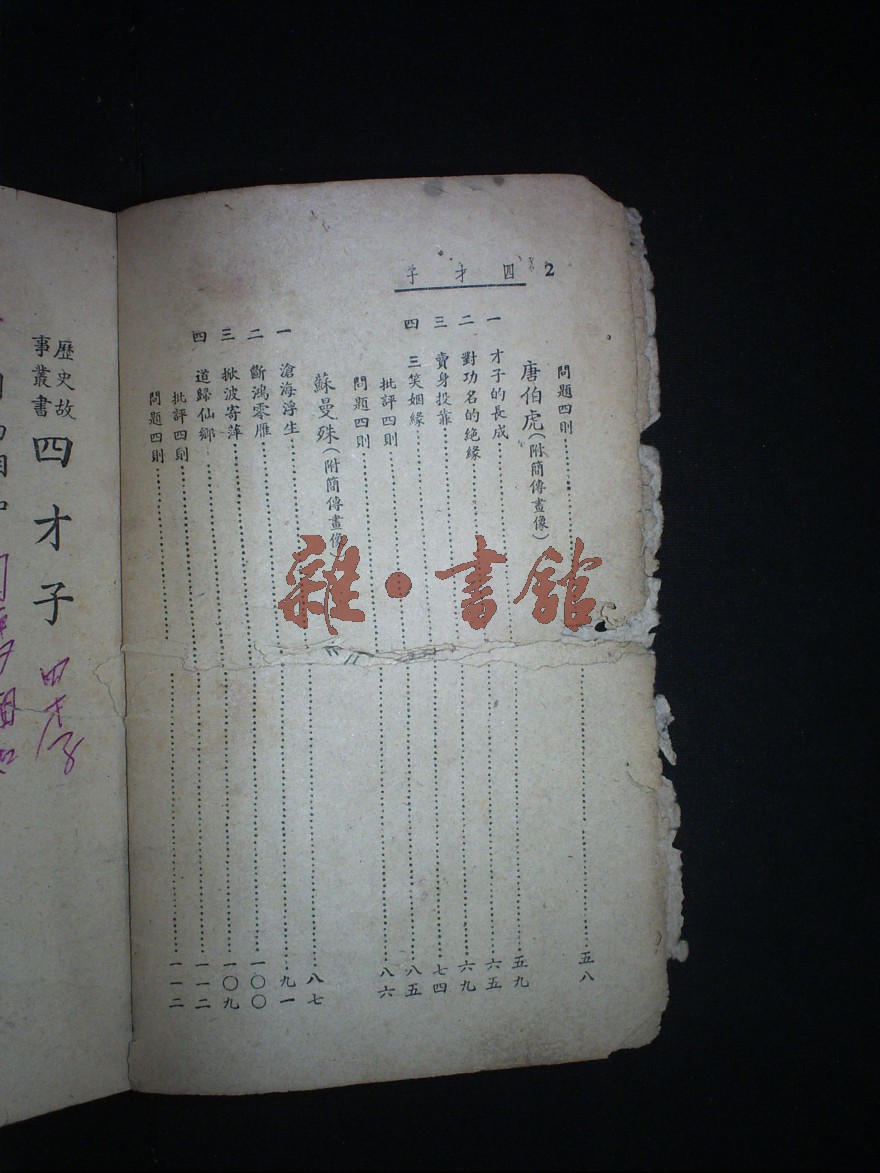 2 四才子
問題四則……五八
唐伯虎(附簡傳畫像)
一 才子的長成……五九
二 對功名的絶緣……六五
三 賣身投靠……六九
四 三笑姻緣……七四
批評四則……八五
問題四則……八六
蘇曼殊(附簡傳畫像)
一 滄海浮生……八七
二 斷鴻零雁……九一
三 掀波寄萍……一〇〇
四 道歸仙鄉……一〇九
批評四則……一一二
問題四則……一一二
歷史故
事叢書
四才子
四才子
雜·書館